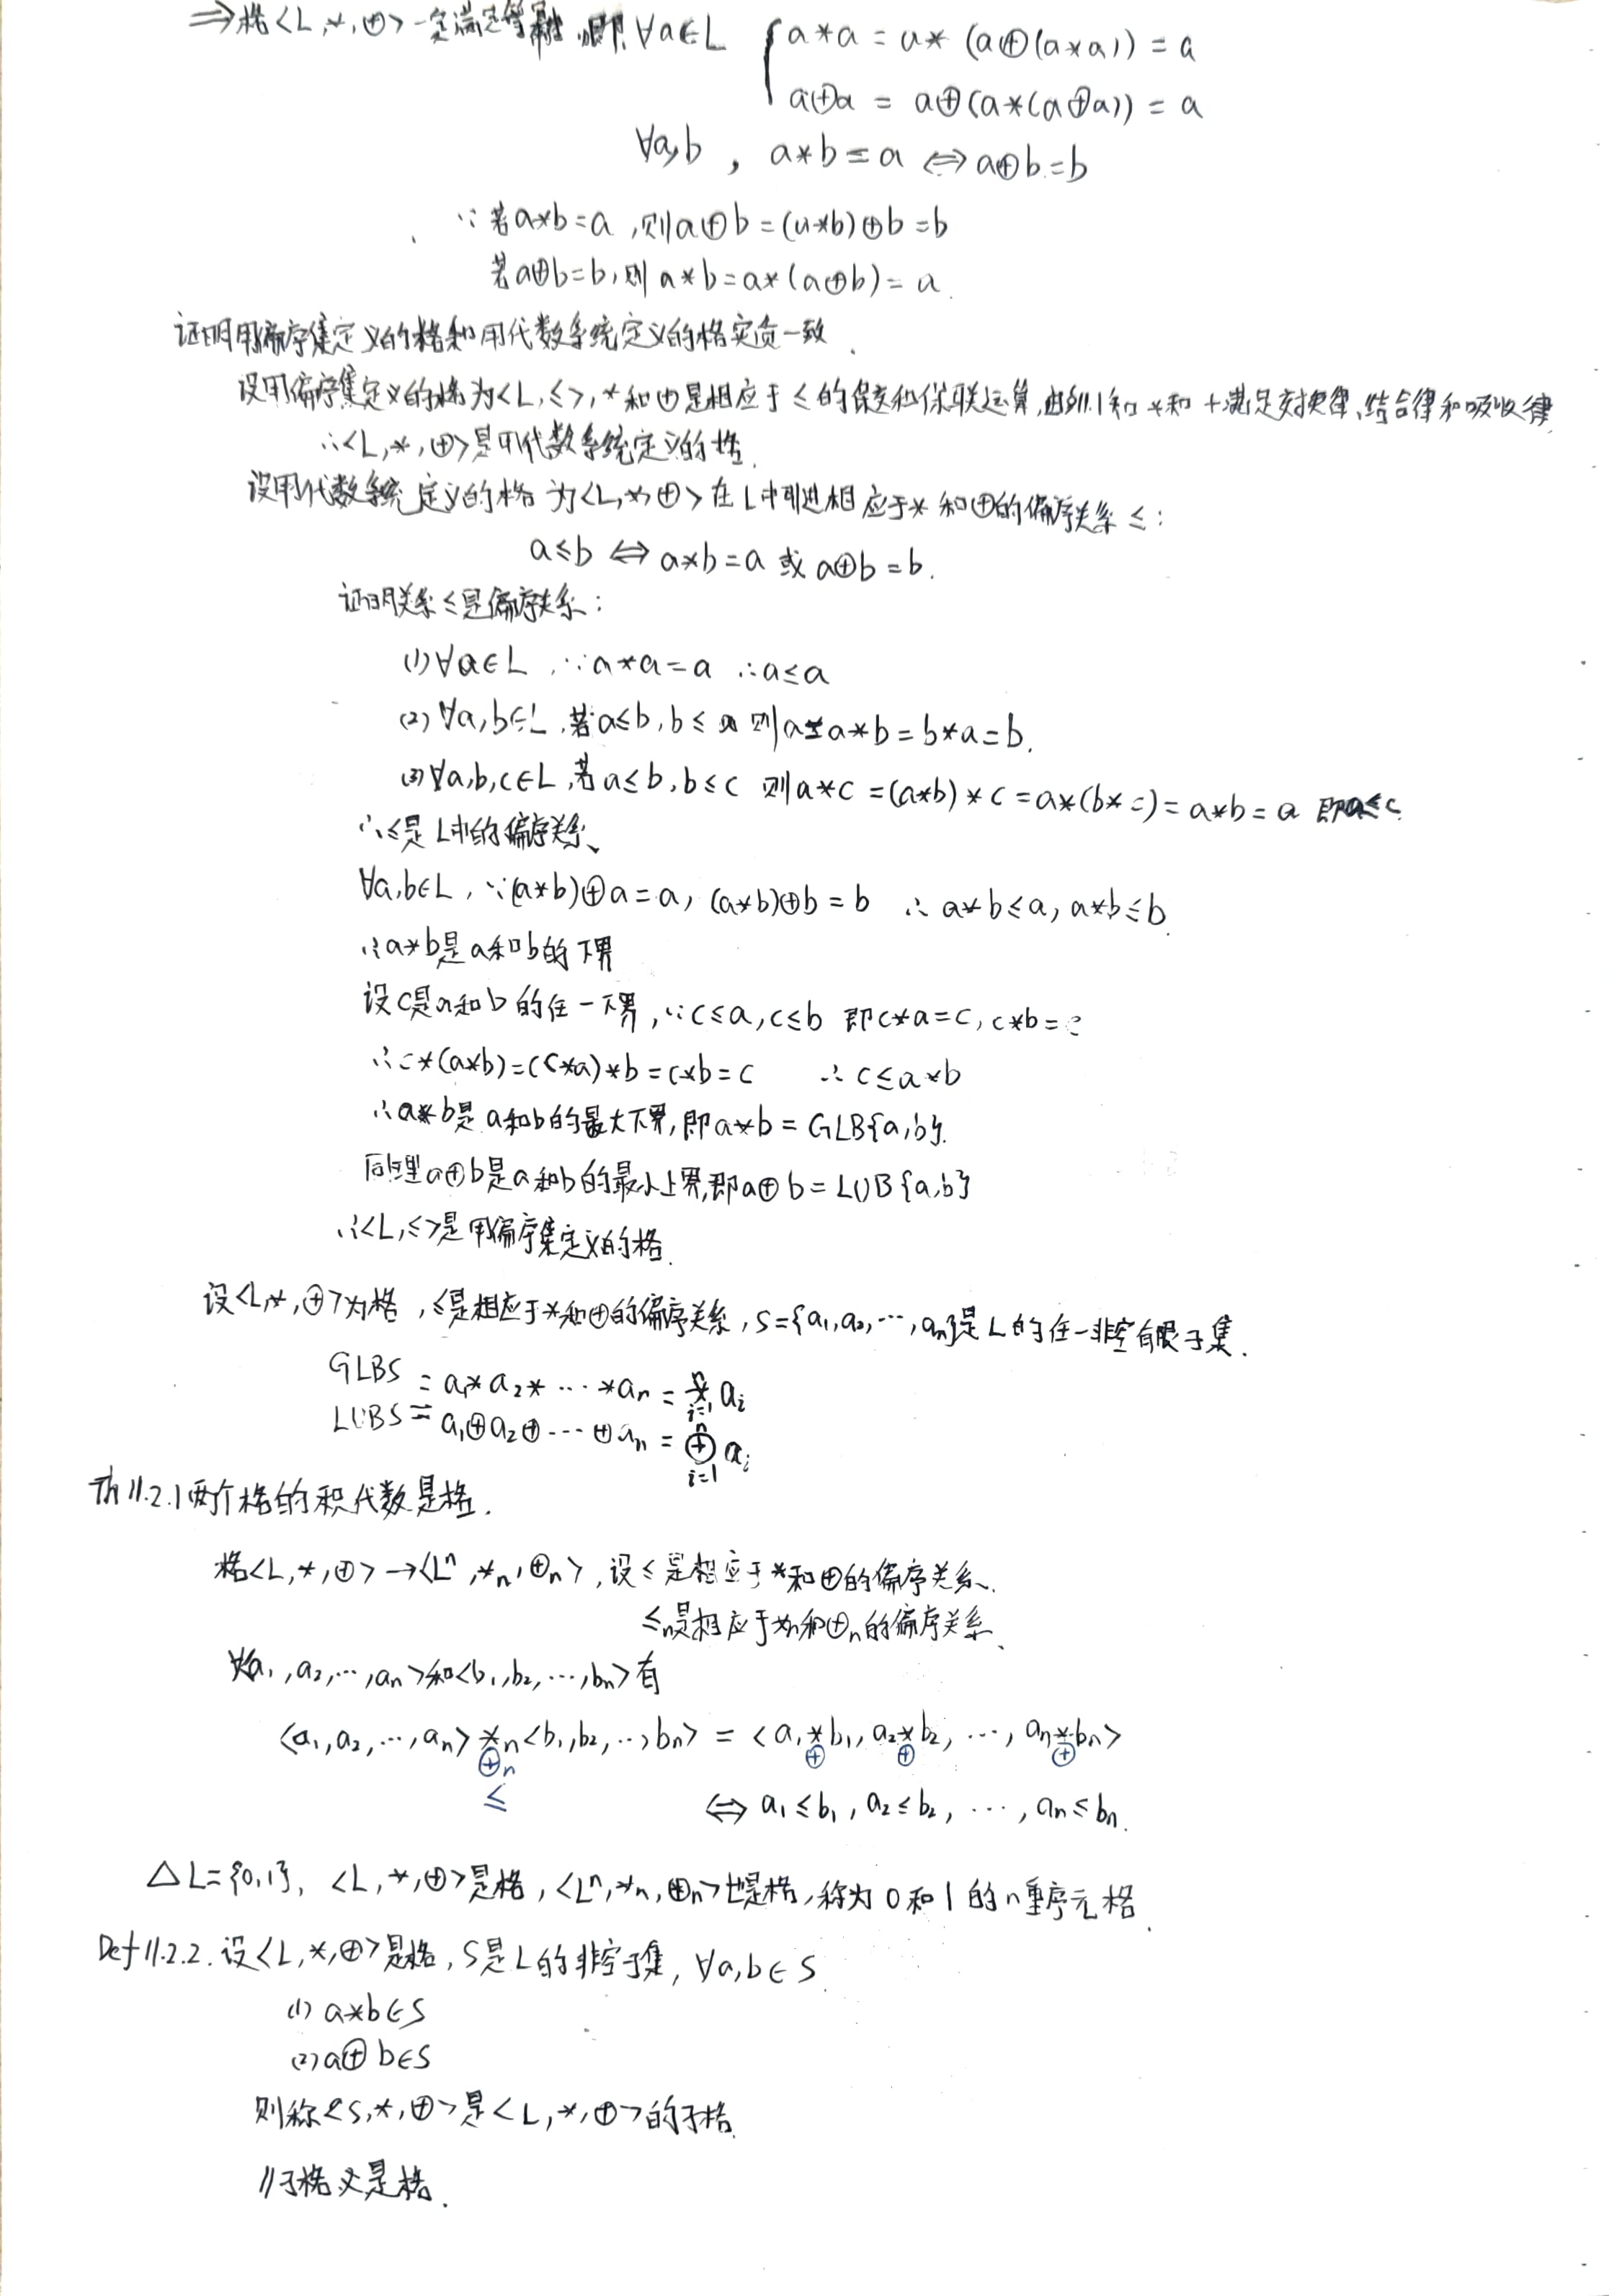 ⇒格<L,*,⊕>一定满足等幂,即∀a∈L { a*a = a*(a⊕(a*a)) = a
a⊕a = a⊕(a*(a⊕a)) = a
∀a,b , a*b=a ⇔ a⊕b=b
∵若a*b=a,则a⊕b=(a*b)⊕b=b
若a⊕b=b,则a*b=a*(a⊕b)=a.
证明用偏序集定义的格和用代数系统定义的格实质一致.
设用偏序集定义的格为<L,≤>,*和⊕是相应于≤的保交和保联运算,由§11.1知*和+满足交换律、结合律和吸收律.
∴<L,*,⊕>是用代数系统定义的格.
设用代数系统定义的格为<L,*,⊕>在L中引进相应于*和⊕的偏序关系≤:
a≤b ⇔ a*b=a 或 a⊕b=b.
证明关系≤是偏序关系:
(1)∀a∈L ,∵a*a=a ∴a≤a
(2)∀a,b∈L,若a≤b,b≤a 则a=a*b=b*a=b.
(3)∀a,b,c∈L,若a≤b,b≤c 则a*c=(a*b)*c=a*(b*c)=a*b=a 即a≤c.
∴≤是L中的偏序关系.
∀a,b∈L,∵(a*b)⊕a=a,(a*b)⊕b=b ∴a*b≤a,a*b≤b.
∴a*b是a和b的下界
设c是a和b的任一下界,∵c≤a,c≤b 即c*a=c,c*b=c
∴c*(a*b)=(c*a)*b=c*b=c ∴c≤a*b
∴a*b是a和b的最大下界,即a*b=GLB{a,b}.
同理a⊕b是a和b的最小上界,即a⊕b=LUB{a,b}
∴<L,≤>是用偏序集定义的格.
设<L,*,⊕>为格,≤是相应于*和⊕的偏序关系,S={a₁,a₂,⋯,aₙ}是L的任一非空有限子集.
GLBS = a₁*a₂*⋯*aₙ = n * i=1 aᵢ
LUBS = a₁⊕a₂⊕⋯⊕aₙ = n ⊕ i=1 aᵢ
Th11.2.1两个格的积代数是格.
格<L,*,⊕>→<Lⁿ,*ₙ,⊕ₙ>,设≤是相应于*和⊕的偏序关系.
≤ₙ是相应于*ₙ和⊕ₙ的偏序关系.
∀<a₁,a₂,⋯,aₙ>和<b₁,b₂,⋯,bₙ>有
<a₁,a₂,⋯,aₙ>*ₙ<b₁,b₂,⋯,bₙ> = <a₁*b₁,a₂*b₂,⋯,aₙ*bₙ>
⊕ₙ ⊕ ⊕ ⊕
≤ ⇔ a₁≤b₁,a₂≤b₂,⋯,aₙ≤bₙ.
△L={0,1}, <L,*,⊕>是格,<Lⁿ,*ₙ,⊕ₙ>也是格,称为0和1的n重序元格.
Def11.2.2.设<L,*,⊕>是格,S是L的非空子集,∀a,b∈S.
(1) a*b∈S
(2) a⊕b∈S
则称<S,*,⊕>是<L,*,⊕>的子格.
//子格必是格.